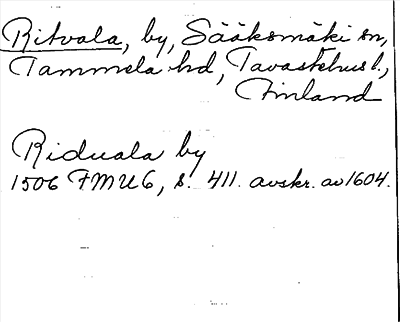 Ritvala, by, Sääksmäki sn,
Tammela hd, Tavastehus l.,
Finland
Riduala by
1506 FMU 6, s. 411. avskr. av 1604.